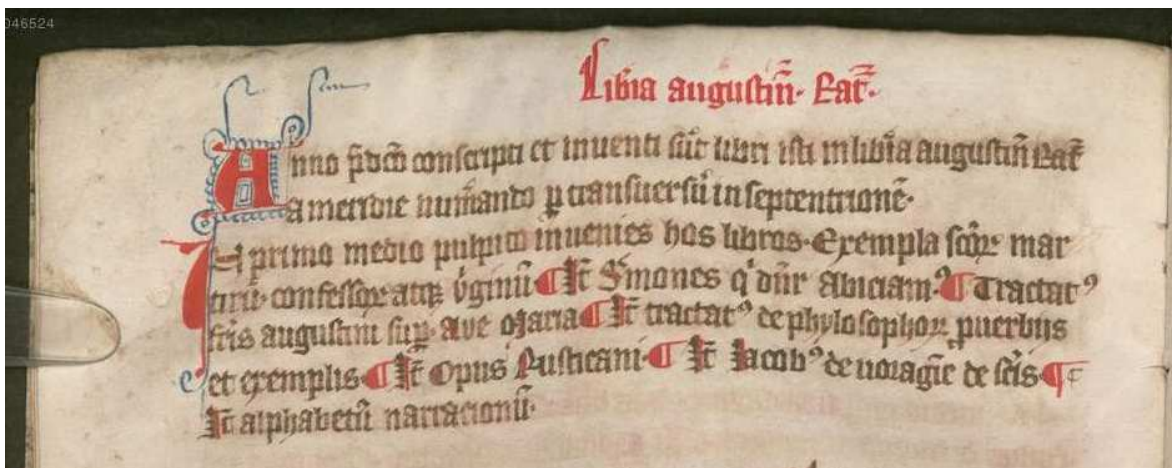 046524
Libīa augustin̄. Rat̄.
Anno p̄dc̄o conscripti et inuenti sūt libri isti in libīa augustin̄ Rat̄
a meridie num̄ando ꝑ transuersū in septentrionē.
In primo medio pulpito inuenies hos libros. Exempla sc̄oꝝ mar
tirū. confessoꝝ atqꝫ v̄ginū ¶ It̄ S̄mones q̄ dn̄r abiciam.ꝰ ¶ Tractatꝰ
fr̄is augustini suꝑ. Aue Maria ¶ It̄ tractatꝰ de phylosophoꝝ ꝓuerbiis
et exemplis. ¶ It̄ Opus Rusticani. ¶ It̄ Jacobꝰ de uoragīe de sc̄is. ¶
It̄ alphabetū narracionū.